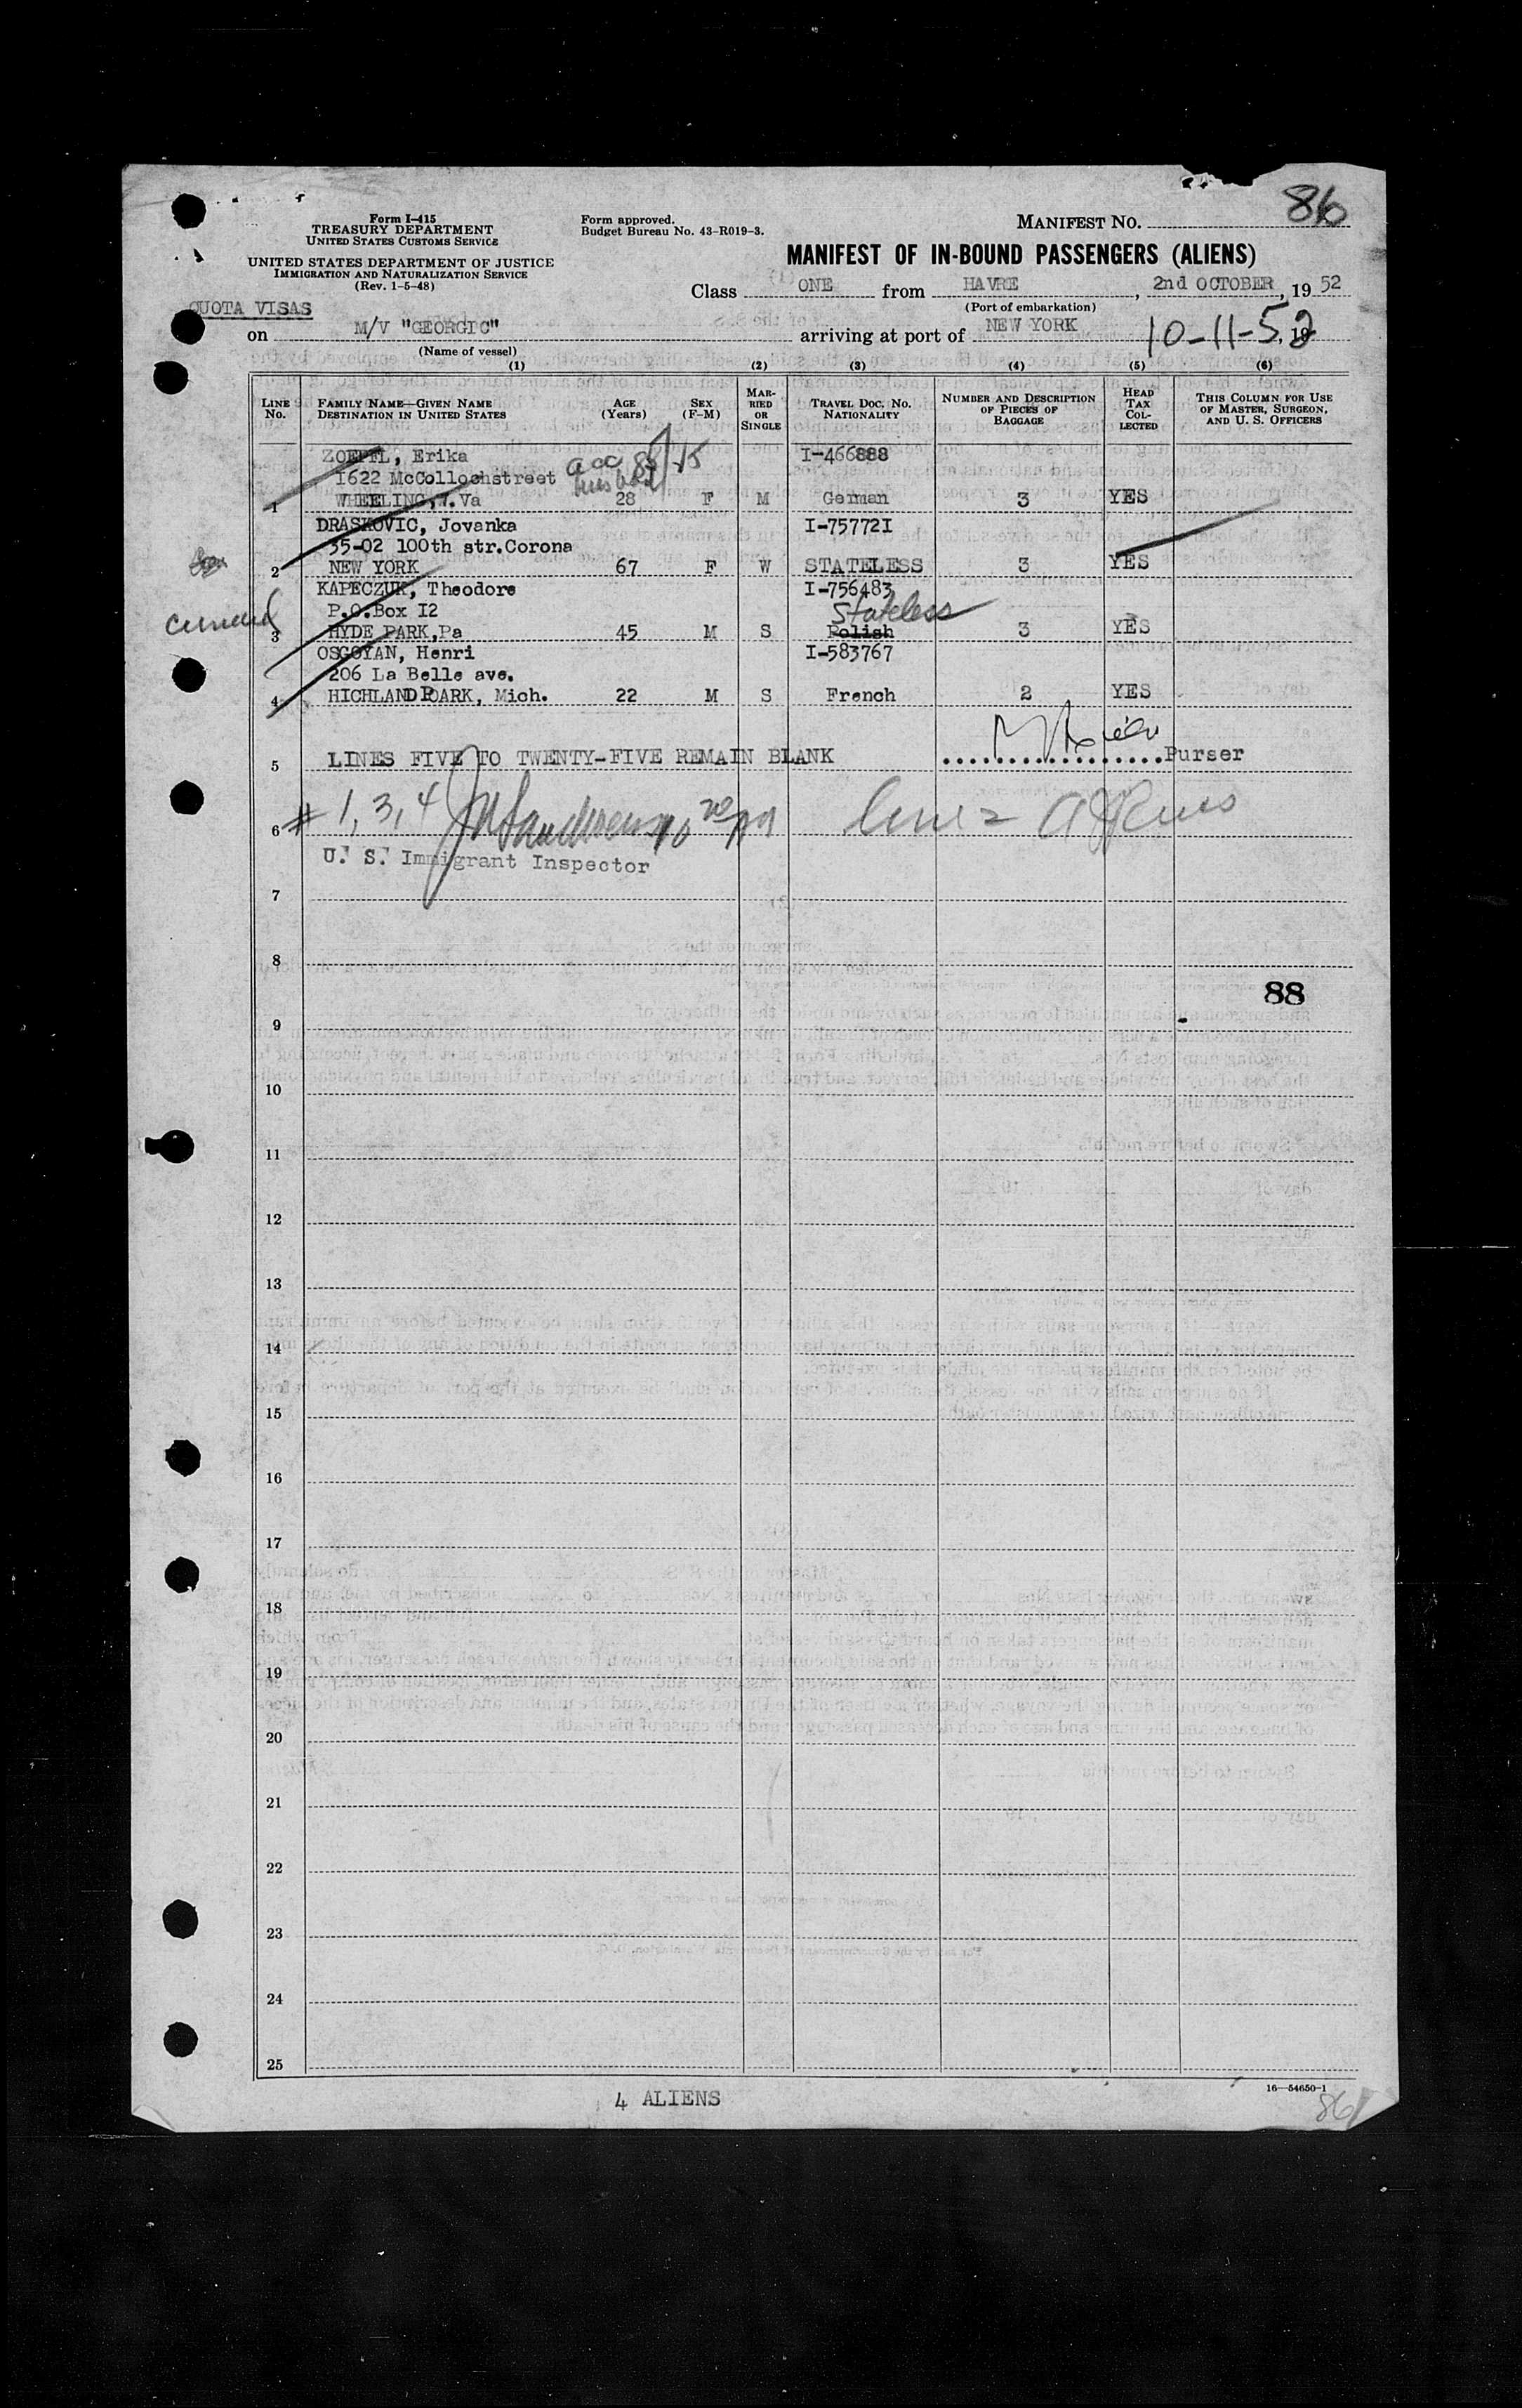 86
Form I-415
TREASURY DEPARTMENT
UNITED STATES CUSTOMS SERVICE
Form approved.
Budget Bureau No. 43-R019-3.
MANIFEST NO.
UNITED STATES DEPARTMENT OF JUSTICE
IMMIGRATION AND NATURALIZATION SERVICE
(Rev. 1-5-48)
MANIFEST OF IN-BOUND PASSENGERS (ALIENS)
Class ONE from HAVRE, 2nd OCTOBER, 19 52
(Port of embarkation)
QUOTA VISAS
on M/V "GEORGIC" arriving at port of NEW YORK 10-11-52
(Name of vessel)
(1) (2) (3) (4) (5) (6)
LINE No. FAMILY NAME—GIVEN NAME DESTINATION IN UNITED STATES AGE (Years) SEX (F-M) MARRIED OR SINGLE TRAVEL DOC. NO. NATIONALITY NUMBER AND DESCRIPTION OF PIECES OF BAGGAGE HEAD TAX COLLECTED THIS COLUMN FOR USE OF MASTER, SURGEON, AND U. S. OFFICERS
ZOEPFL, Erika I-466888
1622 McCollochstreet acc 85/15
husband
1 WHEELING, W.Va 28 F M German 3 YES
DRASKOVIC, Jovanka I-75772I
35-02 100th str.Corona
2 NEW YORK 67 F W STATELESS 3 YES
KAPECZUK, Theodore I-756483
P.O.Box I2 Stateless
3 HYDE PARK,Pa 45 M S Polish 3 YES
OSGOYAN, Henri I-583767
206 La Belle ave.
4 HICHLAND PARK, Mich. 22 M S French 2 YES
5 LINES FIVE TO TWENTY-FIVE REMAIN BLANK Purser
6 # 1, 3, 4
U. S. Immigrant Inspector
7
8
88
9
10
11
12
13
14
15
16
17
18
19
20
21
22
23
24
25
4 ALIENS
16—54650-1
86